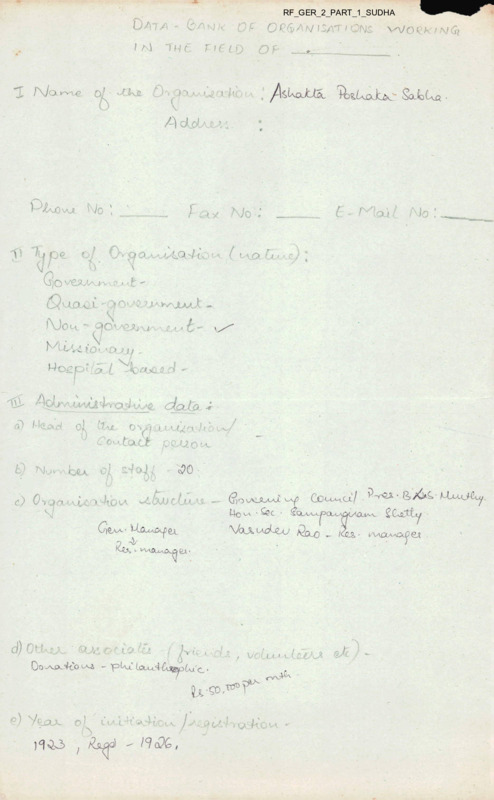 RF_GER_2_PART_1_SUDHA
DATA-BANK OF ORGANISATIONS WORKING
IN THE FIELD OF ________
I Name of the Organisation: Ashakta Poshaka Sabha.
Address :
Phone No: _____ Fax No: _____ E-Mail No: _____
II Type of Organisation (nature):
Government-
Quasi-government-
Non-government- ✓
Missionary-
Hospital based-
III Administrative data:
a) Head of the organisation/
contact person -
b) Number of staff - 20
c) Organisation structure - Governing Council Pres. B.K.S. Murthy.
Hon. Sec. Sampangiram Shetty
Gen. Manager Vasudev Rao - Res. manager
Res. manager.
d) Other associates (friends, volunteers etc) -
Donations - philanthrophic.
Rs. 50,000 per mth
e) Year of initiation/registration -
1923, Regd - 1926.